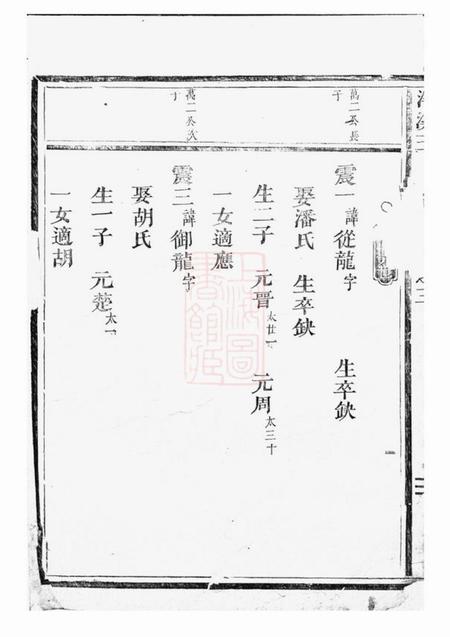 萬二公長子
震一 諱從龍字 生卒缺
娶潘氏 生卒缺
生二子 元晋太廿一 元周太三十
一女適應
萬二公次子
震三諱御龍字
娶胡氏
生一子 元楚太一
一女適胡
上海圖書館藏